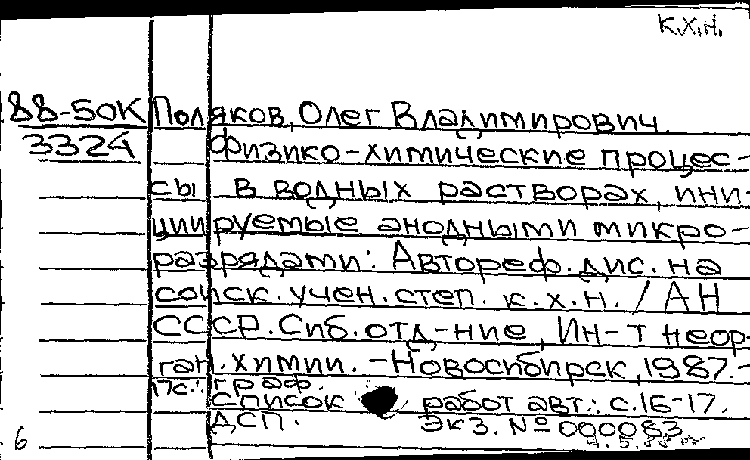 К.Х.Н.
88-50К Поляков, Олег Владимирович.
3324 Физико-химические процес-
сы в водных растворах, ини-
циируемые анодными микро-
разрядами: Автореф. дис. на
соиск. учен. степ. к.х.н. / АН
СССР. Сиб. отд-ние, Ин-т неор-
ган. химии. - Новосибирск, 1987. -
17с.: граф.
Список работ авт.: с.16-17.
ДСП. Экз. № 000083
6